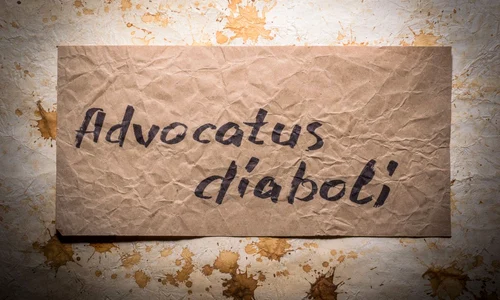 Advocatus
diaboli